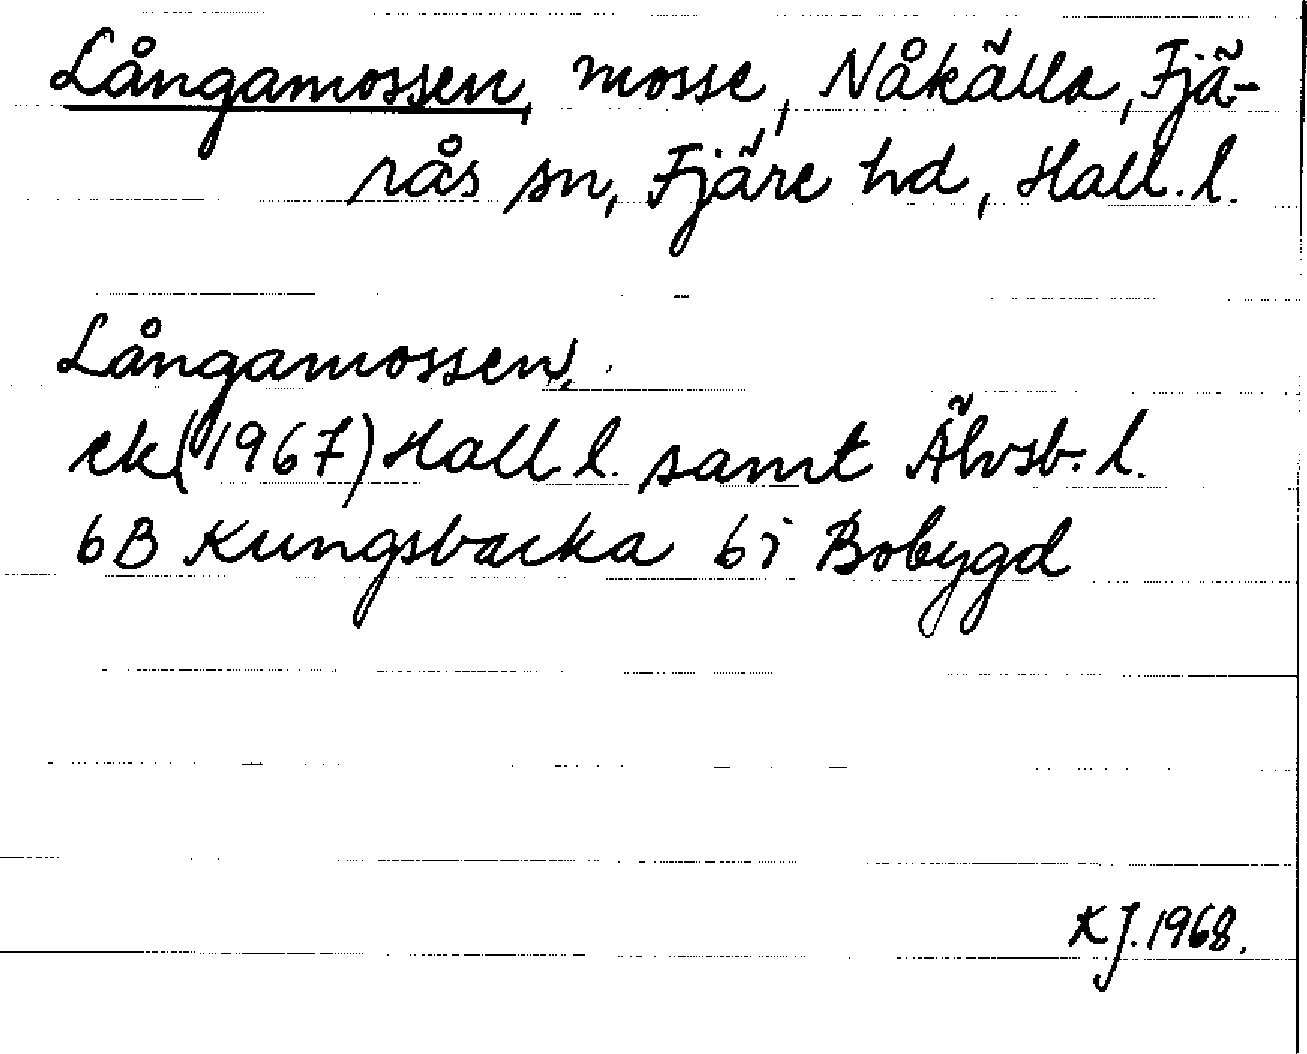 Långamossen, mosse, Nåkälla, Fjä-
rås sn, Fjäre hd, Hall. l.
Långamossen,
ek (1967) Hall. l. samt Älvsb. l.
6B Kungsbacka 6i Bobygd
KJ. 1968.